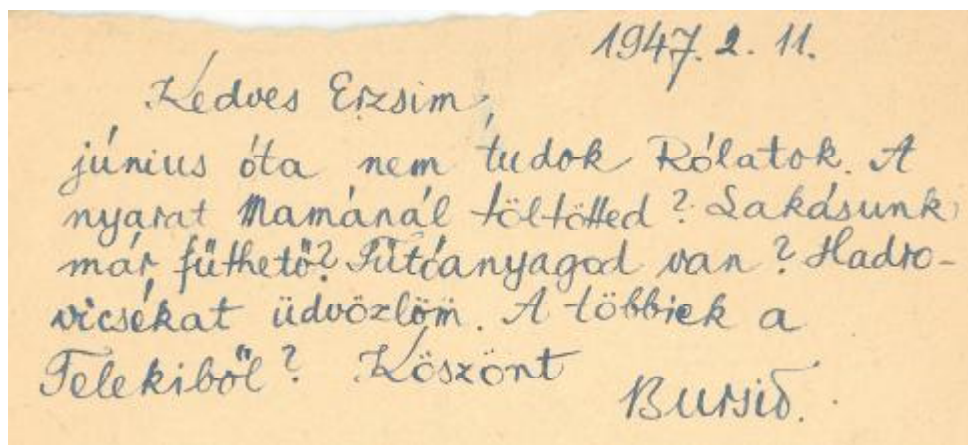 1947. 2. 11.
Kedves Erzsim,
június óta nem tudok Rólatok. A
nyarat Mamánál töltötted? Lakásunk
már fűthető? Fűtőanyagod van? Hadro-
vicsékat üdvözlöm. A többiek a
Telekiből? Köszönt